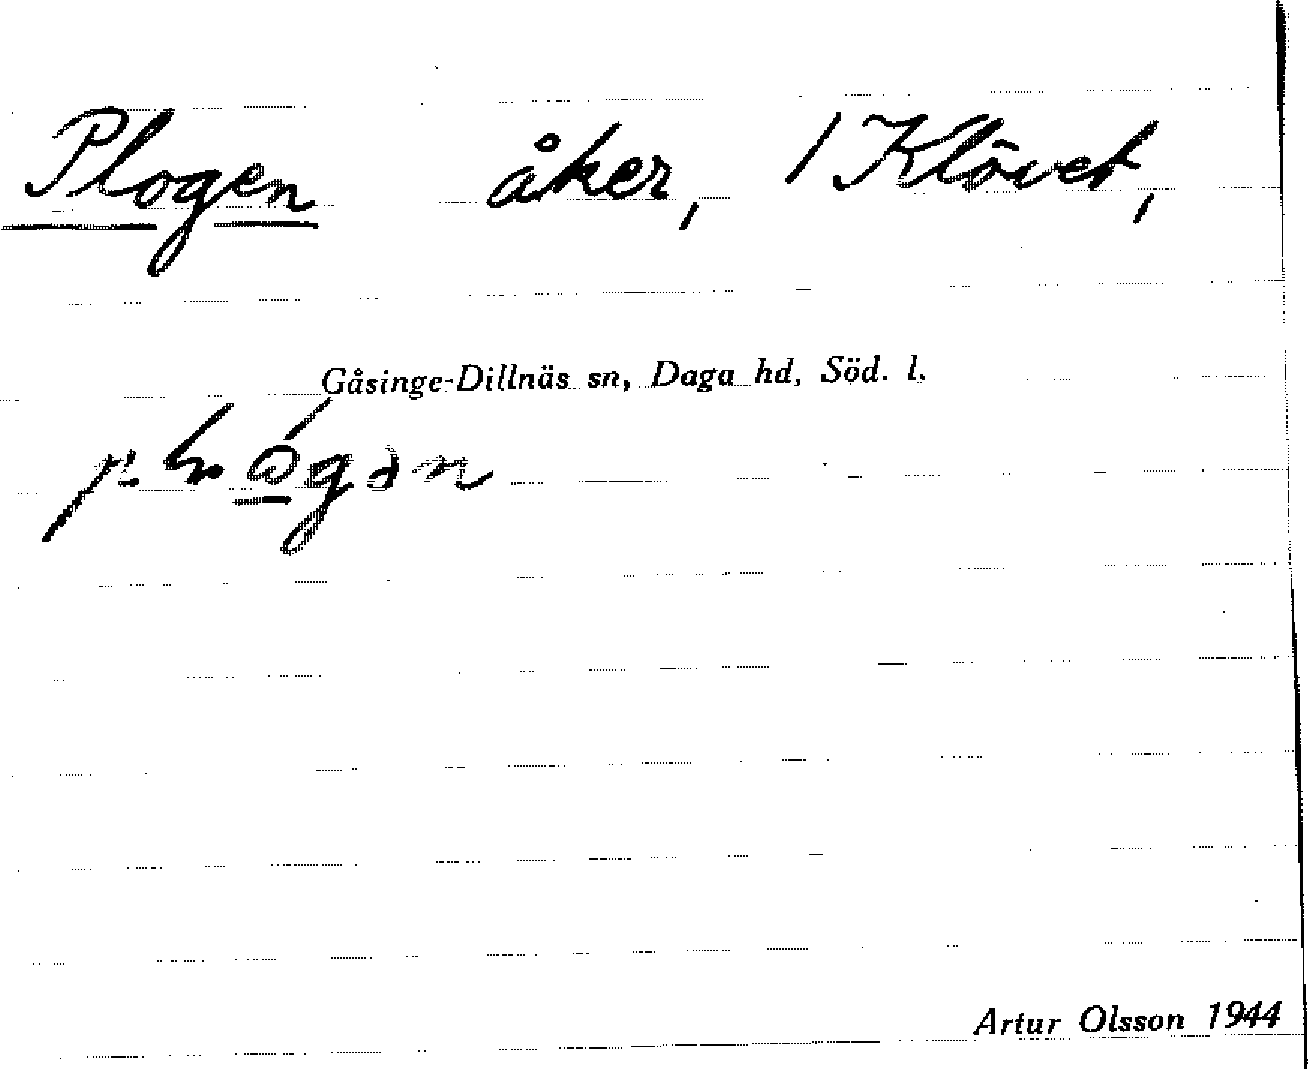 Plogen åker, / Klövet,
Gåsinge-Dillnäs sn, Daga hd, Söd. l.
Artur Olsson 1944